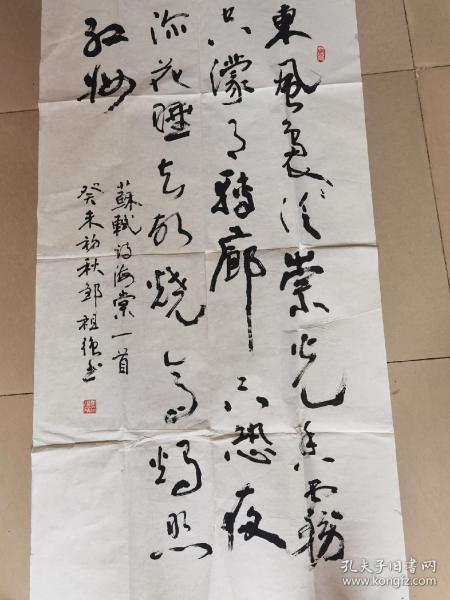 東風袅々泛崇光香雾
空濛月轉廊只恐夜
深花睡去故燒高燭照
红妝
蘇軾诗海棠一首
癸未初秋邹祖德书
孔夫子旧书网
www.kongfz.com